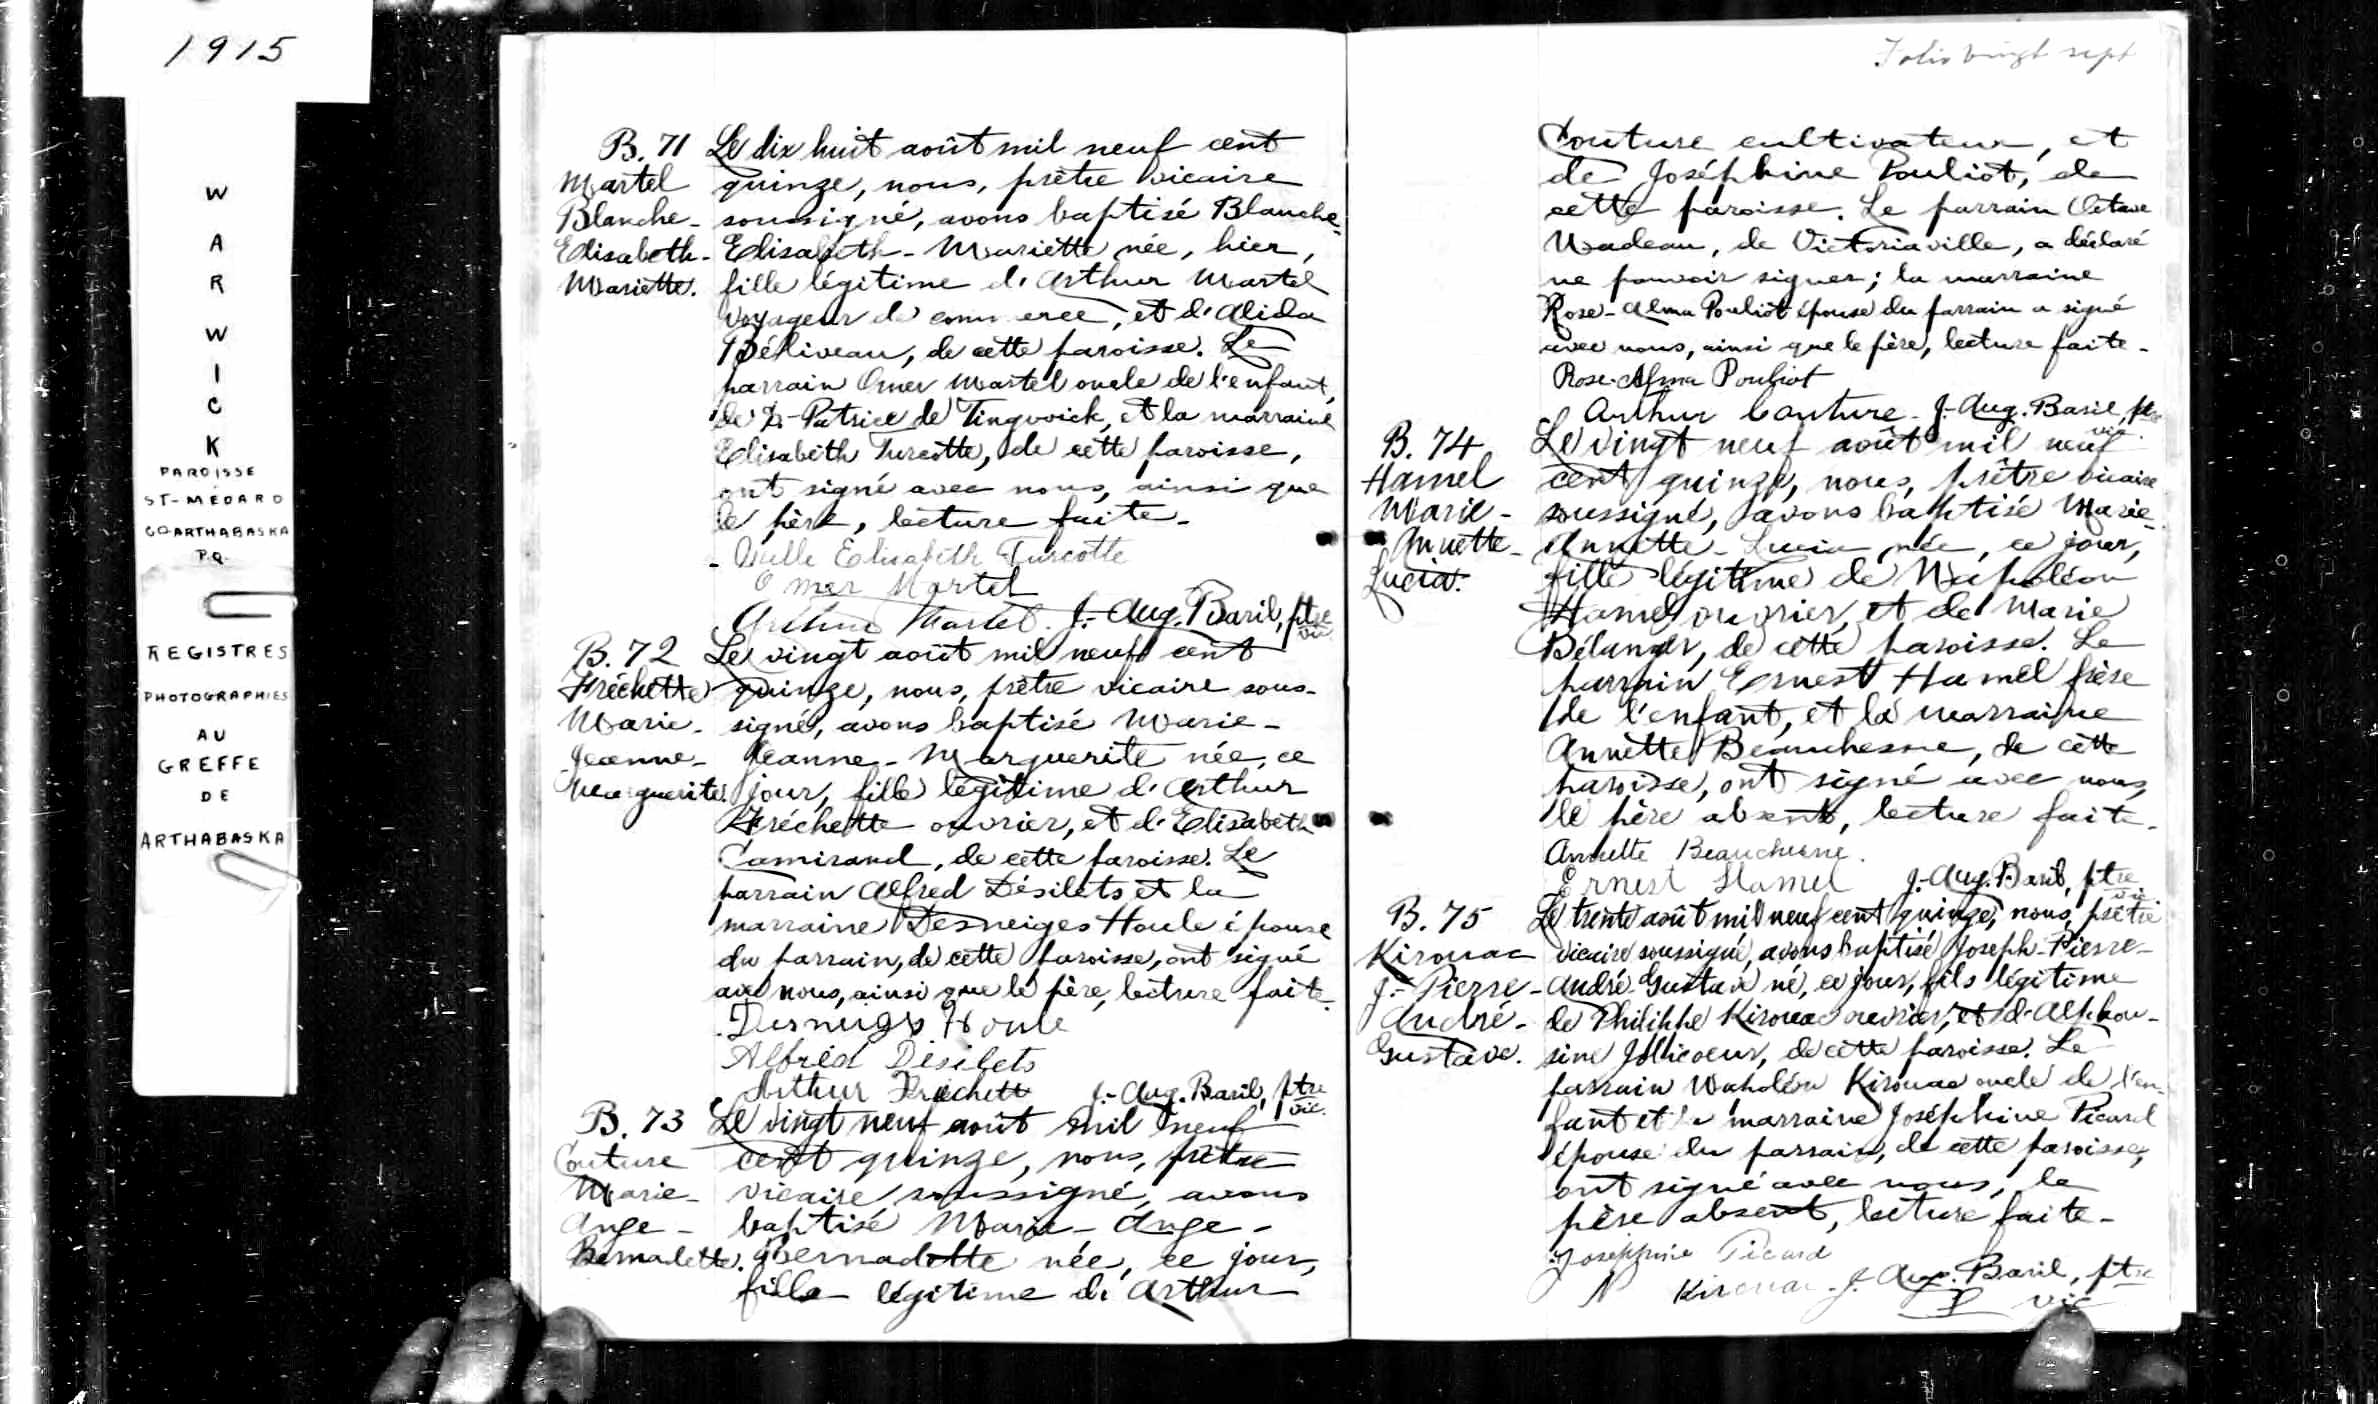 1915
W
A
R
W
I
C
K
PAROISSE
ST-MÉDARD
CO ARTHABASKA
P.Q.
REGISTRES
PHOTOGRAPHIES
AU
GREFFE
DE
ARTHABASKA
B. 71
Martel
Blanche-
Elisabeth-
Mariette.
Le dix huit août mil neuf cent
quinze, nous, prêtre vicaire
soussigné, avons baptisé Blanche-
Elisabeth-Mariette née, hier,
fille légitime d'Arthur Martel
voyageur de commerce, et d'Alida
Béliveau, de cette paroisse. Le
parrain Omer Martel oncle de l'enfant,
de St-Patrice de Tingwick, et la marraine
Elisabeth Turcotte, de cette paroisse,
ont signé avec nous, ainsi que
le père, lecture faite-
Delle Elisabeth Turcotte
Omer Martel
Arthur Martel. J.-Aug. Baril, ptre
vic.
B. 72
Fréchette
Marie-
Jeanne-
Marguerite.
Le vingt août mil neuf cent
quinze, nous, prêtre vicaire sous-
signé, avons baptisé Marie-
Jeanne-Marguerite née, ce
jour, fille légitime d'Arthur
Fréchette ouvrier, et d'Elisabeth
Camirand, de cette paroisse. Le
parrain Alfred Désilets et la
marraine Desneiges Houle épouse
du parrain, de cette paroisse, ont signé
avec nous, ainsi que le père, lecture faite-
Desneiges Houle
Alfred Désilets
Arthur Frechette J.-Aug. Baril, ptre
vic.
B. 73
Couture
Marie-
Ange-
Bernadette.
Le vingt neuf août mil neuf
cent quinze, nous, prêtre
vicaire soussigné, avons
baptisé Marie-Ange-
Bernadette née, ce jour,
fille légitime d'Arthur
Folio vingt sept
Couture cultivateur, et
de Joséphine Pouliot, de
cette paroisse. Le parrain Octave
Nadeau, de Victoriaville, a déclaré
ne pouvoir signer; la marraine
Rose-Alma Pouliot épouse du parrain a signé
avec nous, ainsi que le père, lecture faite-
Rose-Alma Pouliot
Arthur Couture- J.-Aug. Baril, ptre
vic.
B. 74
Hamel
Marie-
Annette-
Lucia.
Le vingt neuf août mil neuf
cent quinze, nous, prêtre vicaire
soussigné, avons baptisé Marie-
Annette-Lucia née, ce jour,
fille légitime de Napoléon
Hamel ouvrier, et de Marie
Bélanger, de cette paroisse. Le
parrain Ernest Hamel frère
de l'enfant, et la marraine
Annette Beauchesne, de cette
paroisse, ont signé avec nous,
le père absent, lecture faite-
Annette Beauchesne.
Ernest Hamel J.-Aug. Baril, ptre
vic.
B. 75
Kirouac
J.-Pierre-
André-
Gustave.
Le trente août mil neuf cent quinze, nous, prêtre
vicaire soussigné, avons baptisé Joseph-Pierre-
André-Gustave né, ce jour, fils légitime
de Philippe Kirouac ouvrier, et d'Alphon-
sine Jollicoeur, de cette paroisse. Le
parrain Napoléon Kirouac oncle de l'en-
fant et la marraine Joséphine Picard
épouse du parrain, de cette paroisse,
ont signé avec nous, le
père absent, lecture faite-
Joséphine Picard
N Kirouac- J. Aug. Baril, ptre
vic